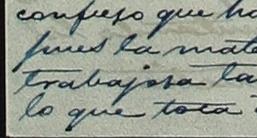 confieso que ha
pues la mate
trabajosa la
lo que toca